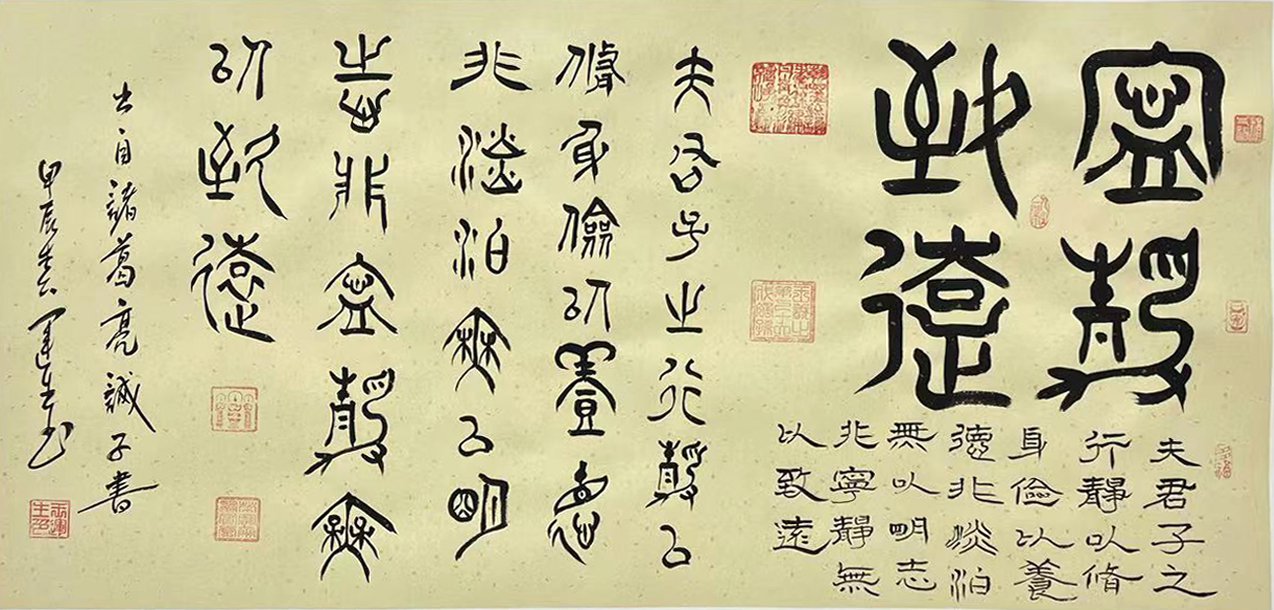 寧靜
致遠
夫君子之
行靜以脩
身儉以養
德非淡泊
無以明志
非寧靜無
以致遠
夫君子之行靜以
脩身儉以養德
非澹泊無以明
志非寧靜無
以致遠
出自諸葛亮誡子書
甲辰